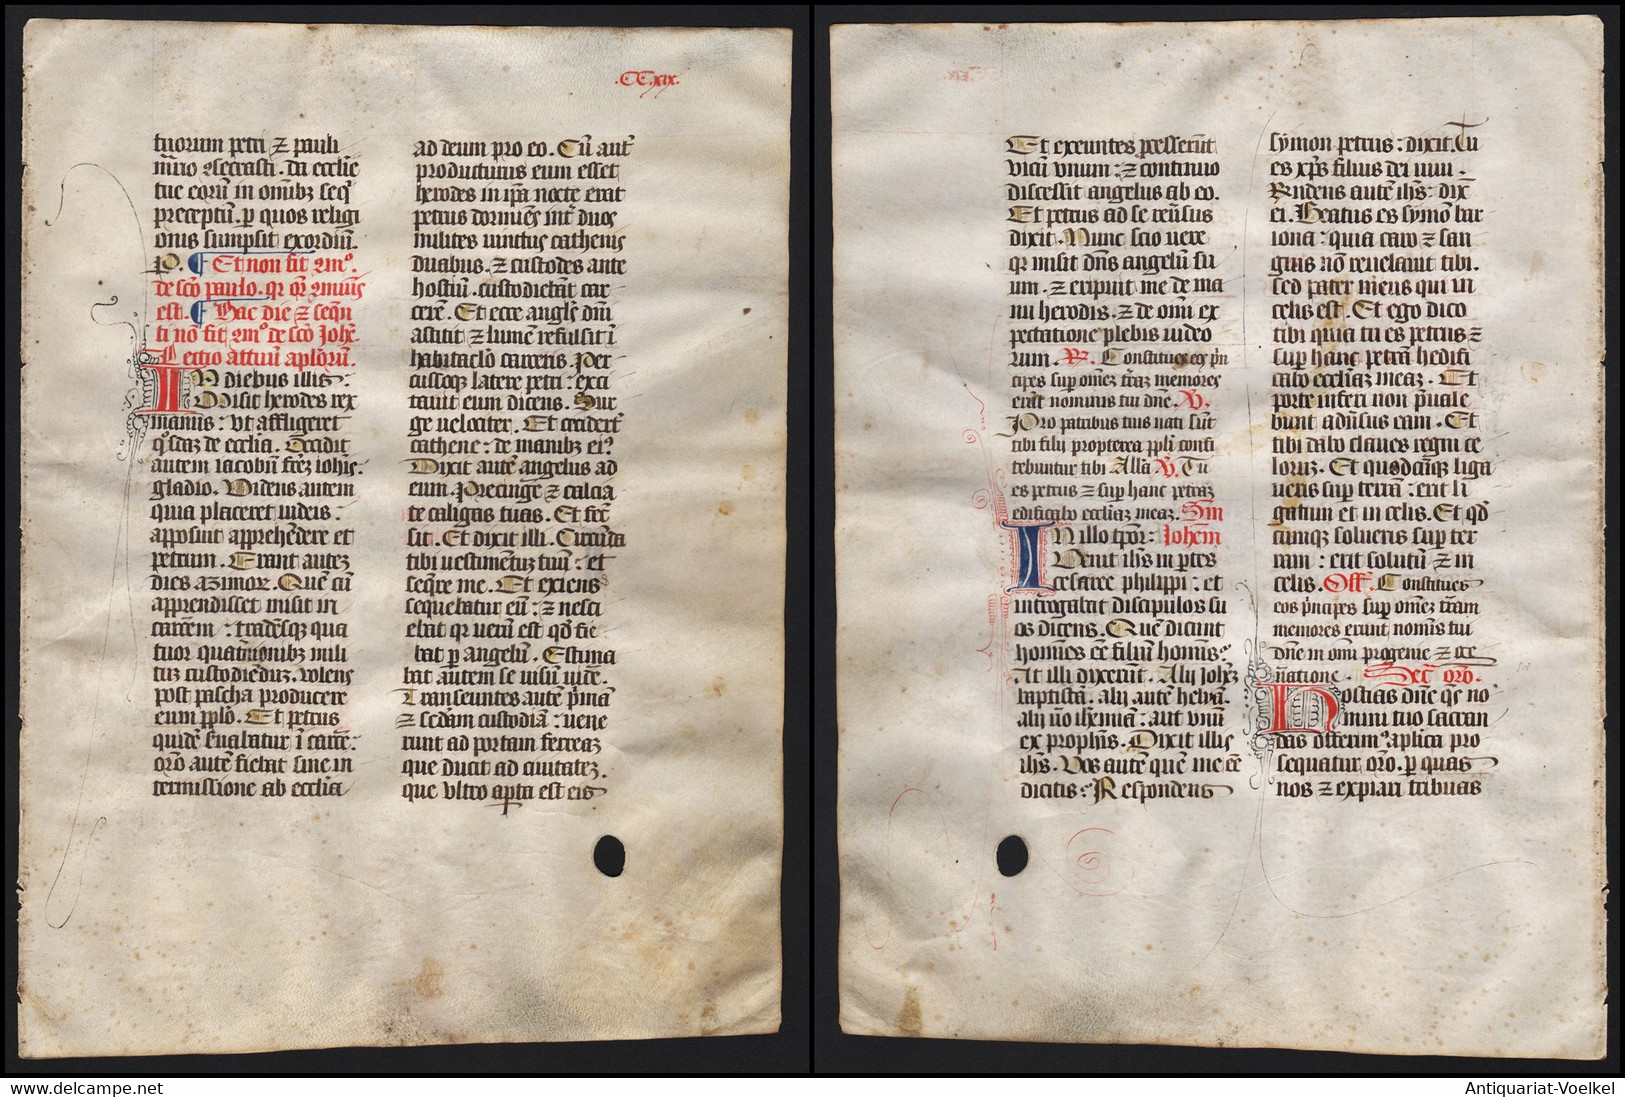 .CC.xix.
tuorum petri ⁊ pauli
m̄rio ꝯsecrasti. da ecclie
tue eorū in omībꝫ seq̄
preceptū. ꝑ quos religi
onis sumpsit exordiū.
P. ¶ Et non fit ꝯmº.
de scō paulo. qr oīm ꝯmuīs
est. ¶ Hac die ⁊ seqn̄
ti nō fit ꝯmº de scō Johe
Lectio actuū aplōrum.
IN diebus illis:
Misit herodes rex
manus: vt affligeret
qͦsdaz de ecclia. Occidit
autem iacobū frēz iohis
gladio. Videns autem
quia placeret iudeis:
apposuit apprehēdere et
petrum. Erant autez
dies azimoꝝ. Quē cū
apprendisset misit in
carcērem: tradēsqꝫ qua
tuor quat̄nionibꝫ mili
tuꝫ custodiēduꝫ. volens
post pascha producere
eum pplō. Et petrus
quidē ẜuabatur ī carcē
orō autē fiebat sine in
termissione ab ecclia
ad deum pro eo. Cū aut
producturus eum esset
herodes in ip̄a nocte erat
petrus dormiēs int̄ duos
milites uinctus cathenis
duabus. ⁊ custodes ante
hostiū. custodiebāt car
cerē. Et ecce angls̄ dn̄i
astitit ⁊ lumē refulsit ī
habitaclō carceris. Per
cussoqꝫ latere petri: exci
tauit eum dicens. Sur
ge uelociter. Et ceciderūt
cathene: de manibꝫ eiꝰ
Dixit autē angelus ad
eum. Precinge ⁊ calcia
te caligas tuas. Et fec̄
sit. Et dixit illi. Circūda
tibi uestimentuꝫ tuū: et
seqre me. Et exiens
sequebatur eū: ⁊ nesci
ebat qr uerū est qd̄ fie
bat ꝑ angelū. Estima
bat autem se uisū uide.
Transeuntes autē prīmā
⁊ sedam custodiā: uene
runt ad portam ferreaꝫ
que ducit ad ciuitateꝫ.
que vltro aꝑta est eis
Et exeuntes ꝓcesserūt
vicū vnum: ⁊ continuo
discessit angelus ab eo.
Et petrus ad se reūsus
dixit. Nunc scio uere
qr misit dn̄s angelū su
um. ⁊ eripuit me de ma
nu herodis. ⁊ de omī ex
pectatione plebis iudeo
rum. R. Constitues eos pn̄
cipes suꝑ omēꝫ t̄raꝫ memores
erūt nominis tui dnē. V.
Pro patribus tuis nati sūt
tibi filij propterea ppli confi
tebuntur tibi Alla V. Tu
es petrus ⁊ suꝑ hanc petraꝫ
edificabo eccliaꝫ meaꝫ. Sm̄
IN illo tp̄or: Johem
Venit ihs̄ in ꝑtes
cesaree philippi: et
intͦrogabat discipulos su
os dicens. Quē dicunt
homīes eē filiū homīs.
At illi dixerūt. Alij johēꝫ
baptistā. alij autē helyā.
alij uō iheremiā: aut vnū
ex prophīs. Dixit illis
ihs̄. Vos autē quē me eē
dicitis. Respondens
symon petrus: dixit. Tu
es xp̄s filius dei uiui.
Rndens autē ihs̄: dix̄
ei. Beatus es symō bar
iona: quia caro ⁊ san
guis nō reuelauit tibi.
sed pater meus qui in
celis est. Et ego dico
tibi quia tu es petrus ⁊
suꝑ hanc petrā hedifi
cabo eccliaꝫ meaꝫ. Et
porte inferi non p̄uale
bunt adūsus eam. Et
tibi dabo claues regni ce
loruꝫ. Et quodcūqꝫ liga
ueris suꝑ terrā: erit li
gatum et in celis. Et qd̄
cumqꝫ solueris suꝑ ter
ram: erit solutū ⁊ in
celis. Off. Constitues
eos p̄ncipes suꝑ omēꝫ t̄ram
memores erunt nomīs tui
dn̄e in omī progenie ⁊ ge
nātione. Secr̄ orō.
Hostias dn̄e qs̄ no
mini tuo sacran
das offerimꝰ. aplica pro
sequatur orō. ꝑ quas
nos ⁊ expiari tribuas
Antiquariat-Voelkel
www.delcampe.net
Antiquariat-Voelkel